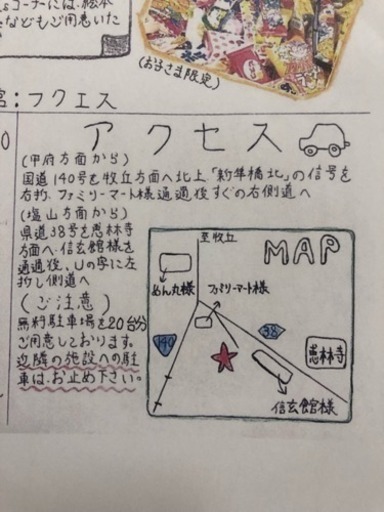 &コーナーには、絵本
などもご用意いた
(お子さま限定)
宮:フクエス
アクセス
(甲府方面から)
国道140号を牧丘方面へ北上「新隼橋北」の信号を
右折、ファミリーマート様通過後すぐの右側道へ
(塩山方面から)
県道38号を恵林寺
方面へ、信玄館様を
通過後、Uの字に左
折し側道へ
(ご注意)
無料駐車場を20台分
ご用意しております。
近隣の施設への駐
車は、お止め下さい。
至牧丘
MAP
めん丸様
ファミリーマート様
140
38
恵林寺
信玄館様